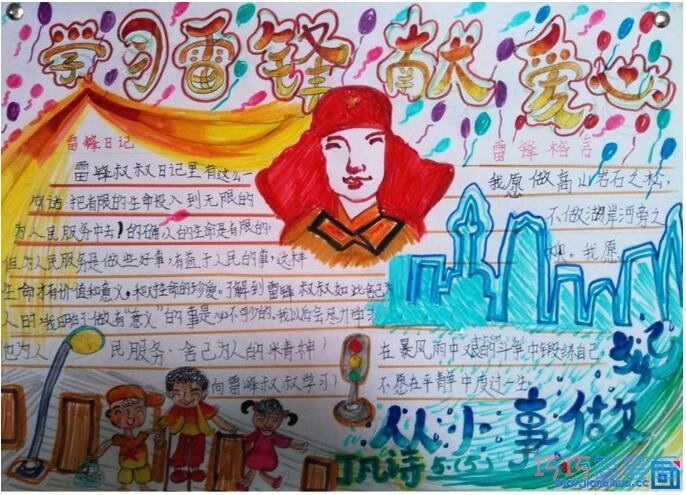 学习雷锋 献爱心
雷锋日记
雷锋叔叔日记里有这么一
句话:把有限的生命投入到无限的
为人民服务中去!的确,人的生命是有限的,
但为人民服务是做些好事,有益于人民的事,这样
生命才有价值和意义,和对生命的珍爱。了解到雷锋叔叔如此舍己
人的 我明 做有“意义”的事是必不可少的,我以后会尽力学习
也为人民服务、舍己为人的 精神!
向雷锋叔叔学习!
雷锋格言
我愿做高山岩石之松,
不做湖岸河旁之
柳。我愿
在暴风雨中 的斗争中锻炼自己,
不愿在平静 中度过一生。
从小事做
诗 5.(5)
www.jianbihua.cc